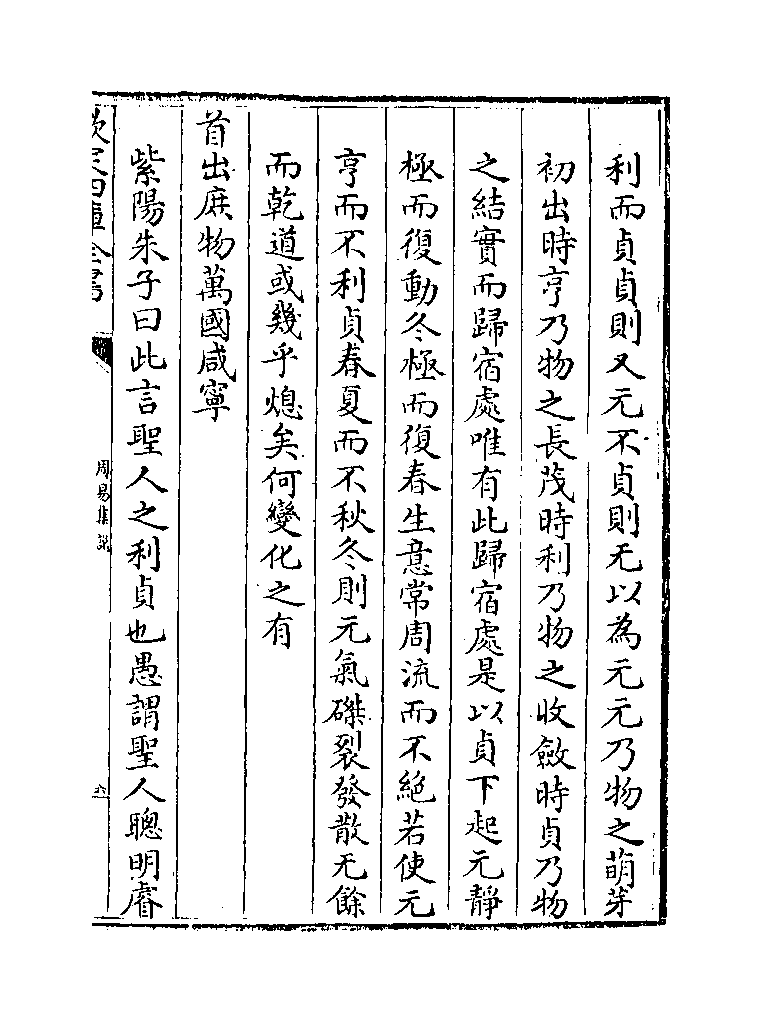 利而貞貞則又元不貞則无以為元元乃物之萌芽
初出時亨乃物之長茂時利乃物之收斂時貞乃物
之結實而歸宿處唯有此歸宿處是以貞下起元靜
極而復動冬極而復春生意常周流而不絶若使元
亨而不利貞春夏而不秋冬則元氣磔裂發散无餘
而乾道或幾乎熄矣何變化之有
首出庶物萬國咸寧
紫陽朱子曰此言聖人之利貞也愚謂聖人聰明睿
欽定四庫全書
周易集說
六